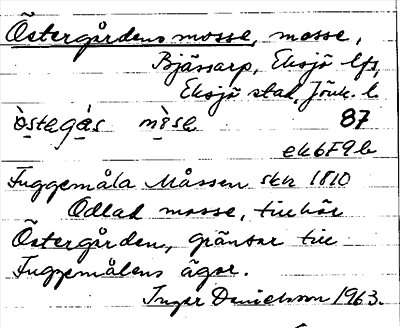 Östergårdens mosse, mosse,
Bjässarp, Eksjö lfs,
Eksjö stad, Jönk. l.
òstegàs mòse 87
ek6F9b
Fuggemåla Måssen skk 1810
Odlad mosse, tillhör
Östergården, gränsar till
Fuggemålens ägor.
Ingar Danielsson 1963.